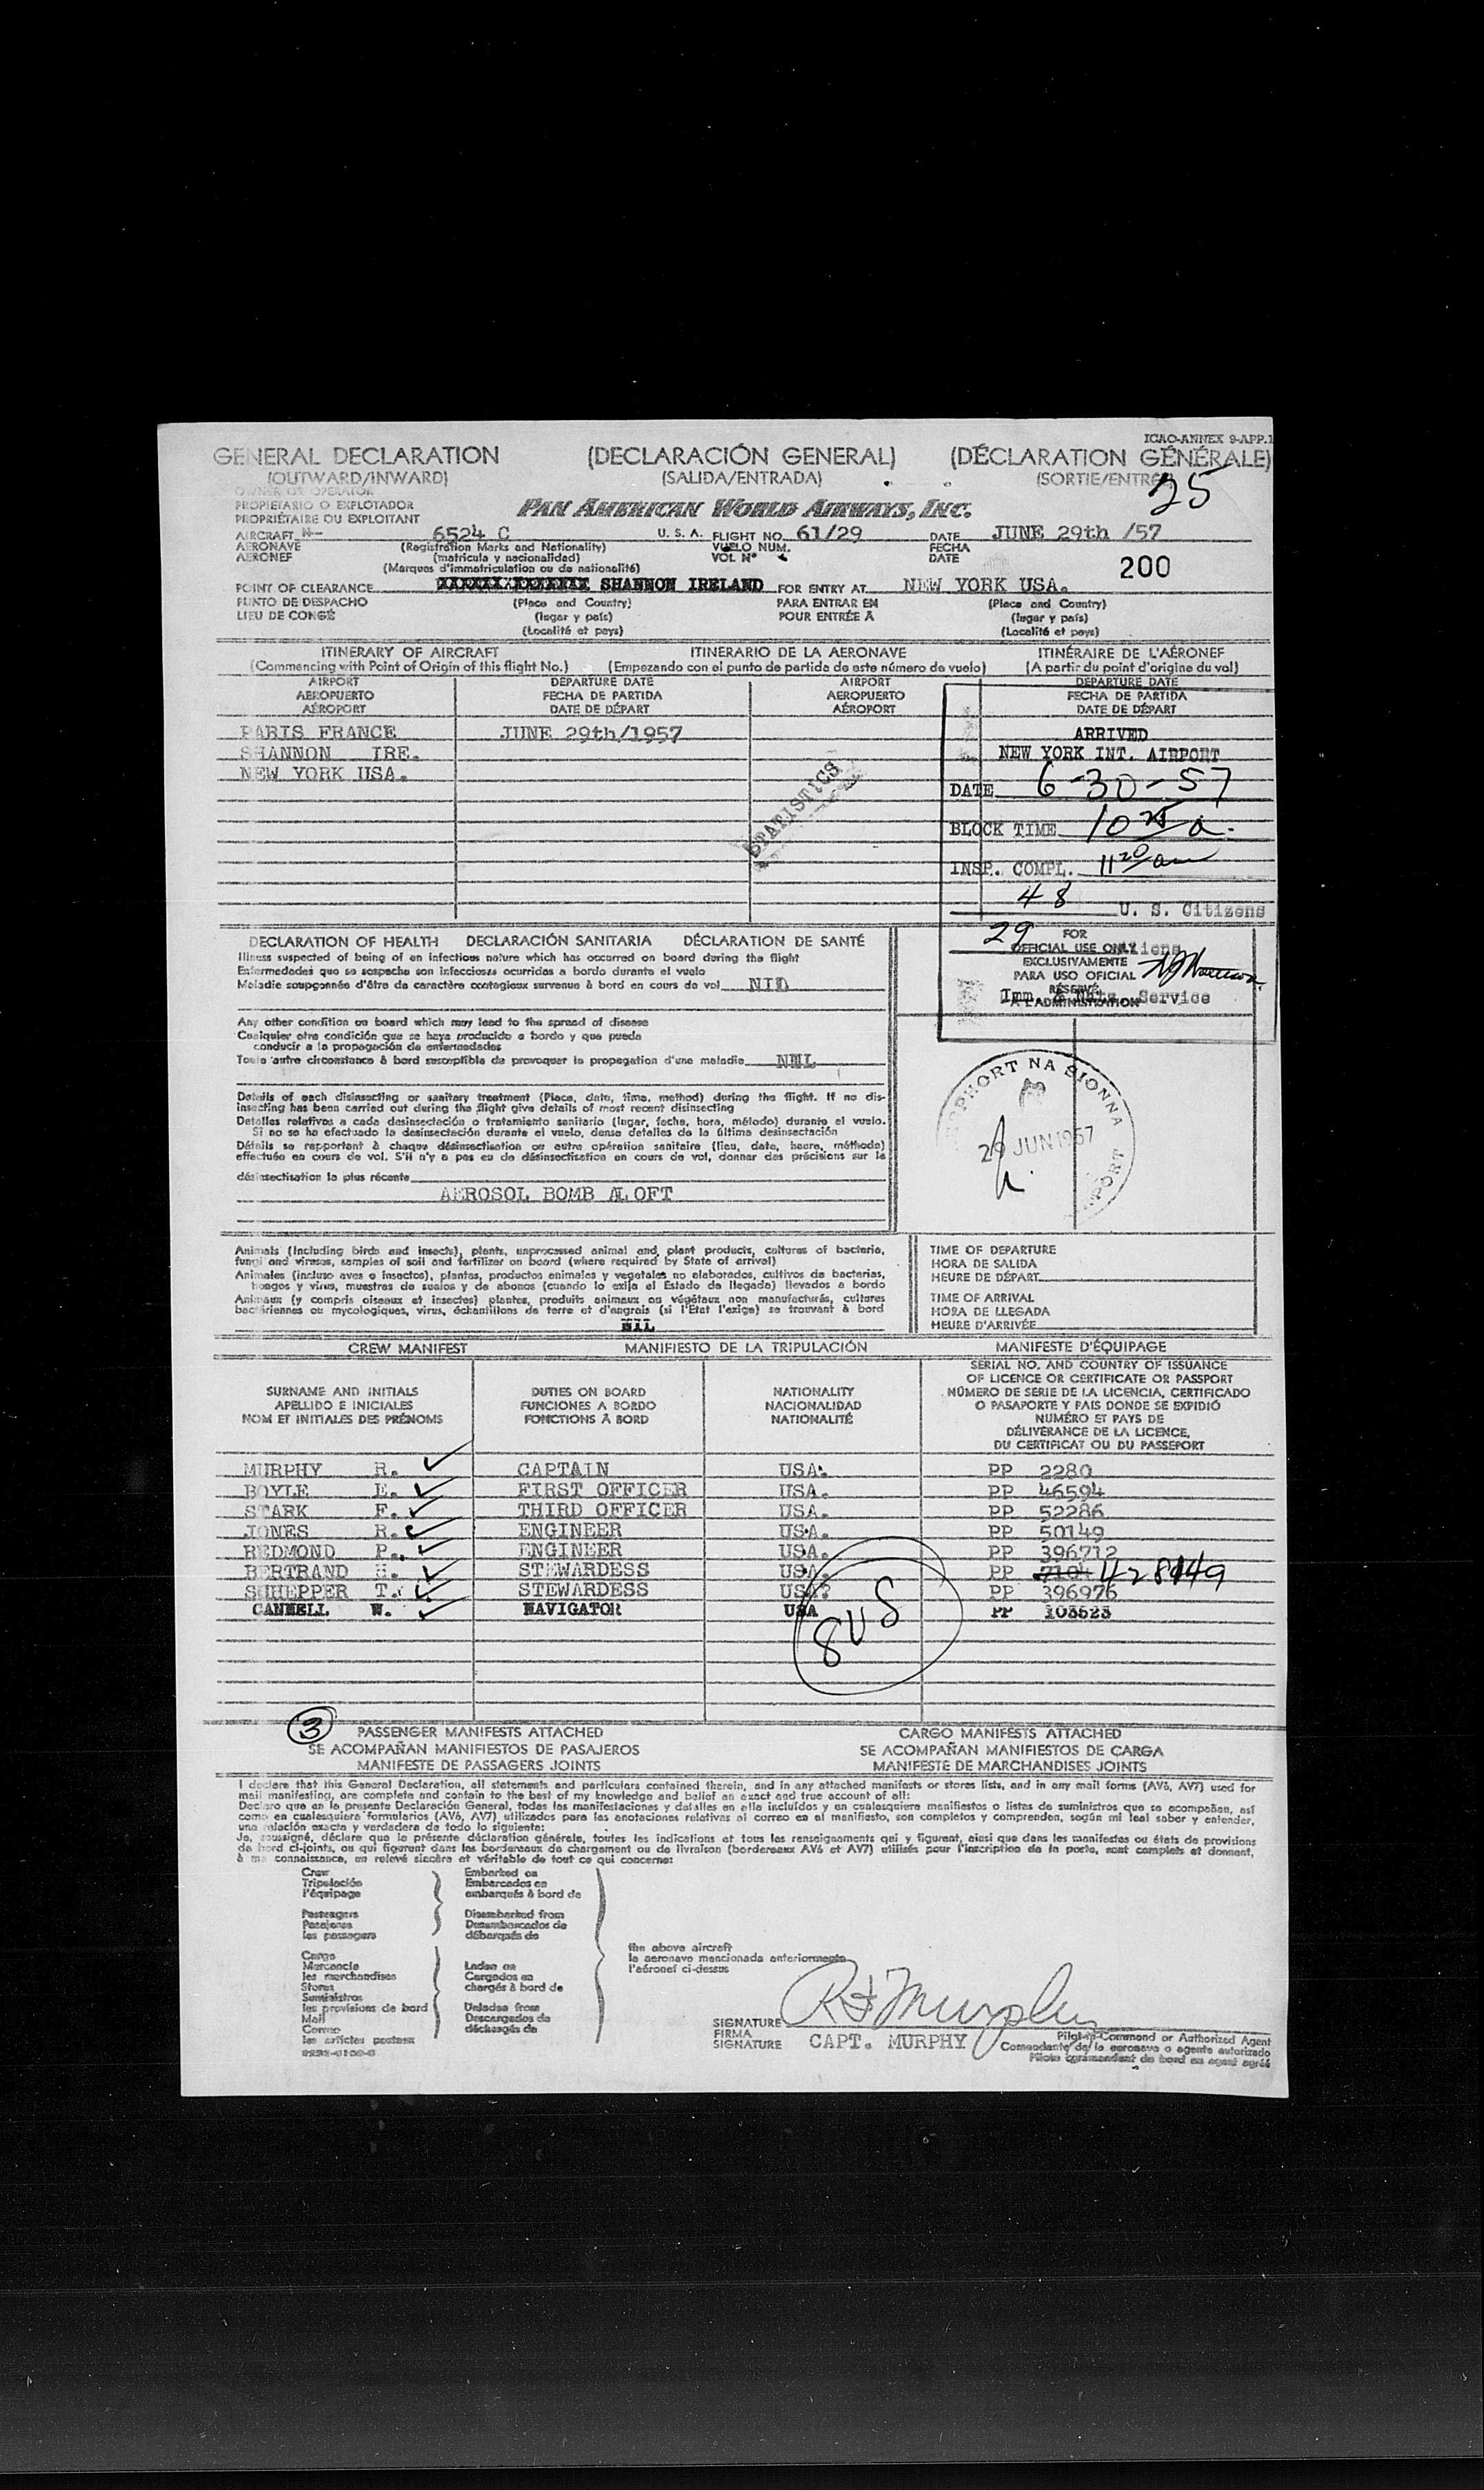 ICAO-ANNEX 9-APP.1
GENERAL DECLARATION (DECLARACIÓN GENERAL) (DÉCLARATION GÉNÉRALE)
(OUTWARD/INWARD) (SALIDA/ENTRADA) (SORTIE/ENTRÉE)
25
OWNER OR OPERATOR
PROPIETARIO O EXPLOTADOR
PROPRIÉTAIRE OU EXPLOITANT
PAN AMERICAN WORLD AIRWAYS, INC.
AIRCRAFT N- 6524 C U. S. A. FLIGHT NO. 61/29 DATE JUNE 29th /57
AERONAVE (Registration Marks and Nationality) VUELO NUM. FECHA
AERONEF (matricula y nacionalidad) VOL Nº DATE
(Marques d'immatriculation ou de nationalité) 200
POINT OF CLEARANCE SHANNON IRELAND FOR ENTRY AT NEW YORK USA.
PUNTO DE DESPACHO (Place and Country) PARA ENTRAR EN (Place and Country)
LIEU DE CONGÉ (lugar y país) POUR ENTRÉE À (lugar y país)
(Localité et pays) (Localité et pays)
ITINERARY OF AIRCRAFT ITINERARIO DE LA AERONAVE ITINÉRAIRE DE L'AÉRONEF
(Commencing with Point of Origin of this flight No.) (Empezando con el punto de partida de este número de vuelo) (A partir du point d'origine du vol)
AIRPORT DEPARTURE DATE AIRPORT DEPARTURE DATE
AEROPUERTO FECHA DE PARTIDA AEROPUERTO FECHA DE PARTIDA
AÉROPORT DATE DE DÉPART AÉROPORT DATE DE DÉPART
PARIS FRANCE JUNE 29th/1957
SHANNON IRE.
NEW YORK USA.
STATISTICS
ARRIVED
NEW YORK INT. AIRPORT
DATE 6-30-57
BLOCK TIME 10 25 a.
INSP. COMPL. 11 20 am
48 U. S. Citizens
29 Aliens
Imm. & Natz. Service
FOR
OFFICIAL USE ONLY
EXCLUSIVAMENTE
PARA USO OFICIAL
RÉSERVÉ
À L'ADMINISTRATION
DECLARATION OF HEALTH DECLARACIÓN SANITARIA DÉCLARATION DE SANTÉ
Illness suspected of being of an infectious nature which has occurred on board during the flight
Enfermedades que se sospecha son infecciosas ocurridas a bordo durante el vuelo
Maladie soupçonnée d'être de caractère contagieux survenue à bord en cours de vol NIL
Any other condition on board which may lead to the spread of disease
Cualquier otra condición que se haya producido a bordo y que pueda
conducir a la propagación de enfermedades
Toute autre circonstance à bord susceptible de provoquer la propagation d'une maladie NIL
Details of each disinsecting or sanitary treatment (Place, date, time, method) during the flight. If no dis-
insecting has been carried out during the flight give details of most recent disinsecting
Detalles relativos a cada desinsectación o tratamiento sanitario (lugar, fecha, hora, método) durante el vuelo.
Si no se ha efectuado la desinsectación durante el vuelo, dense detalles de la última desinsectación
Détails se rapportant à chaque désinsectisation ou autre opération sanitaire (lieu, date, heure, méthode)
effectuée en cours de vol. S'il n'y a pas eu de désinsectisation en cours de vol, donner des précisions sur la
désinsectisation la plus récente
AEROSOL BOMB ALOFT
AEPHORT NA SIONNA
29 JUN 1957
Animals (including birds and insects), plants, unprocessed animal and plant products, cultures of bacteria,
fungi and viruses, samples of soil and fertilizer on board (where required by State of arrival)
Animales (incluso aves e insectos), plantas, productos animales y vegetales no elaborados, cultivos de bacterias,
hongos y virus, muestras de suelos y de abonos (cuando lo exija el Estado de llegada) llevados a bordo
Animaux (y compris oiseaux et insectes) plantes, produits animaux ou végétaux non manufacturés, cultures
bactériennes ou mycologiques, virus, échantillons de terre et d'engrais (si l'Etat l'exige) se trouvant à bord
NIL
TIME OF DEPARTURE
HORA DE SALIDA
HEURE DE DÉPART
TIME OF ARRIVAL
HORA DE LLEGADA
HEURE D'ARRIVÉE
CREW MANIFEST MANIFIESTO DE LA TRIPULACIÓN MANIFESTE D'ÉQUIPAGE
SURNAME AND INITIALS
APELLIDO E INICIALES
NOM ET INITIALES DES PRÉNOMS
DUTIES ON BOARD
FUNCIONES A BORDO
FONCTIONS À BORD
NATIONALITY
NACIONALIDAD
NATIONALITÉ
SERIAL NO. AND COUNTRY OF ISSUANCE
OF LICENCE OR CERTIFICATE OR PASSPORT
NÚMERO DE SERIE DE LA LICENCIA, CERTIFICADO
O PASAPORTE Y PAIS DONDE SE EXPIDIÓ
NUMÉRO ET PAYS DE
DÉLIVERANCE DE LA LICENCE,
DU CERTIFICAT OU DU PASSEPORT
MURPHY R. CAPTAIN USA. PP 2280
BOYLE E. FIRST OFFICER USA. PP 46594
STARK F. THIRD OFFICER USA. PP 52286
JONES R. ENGINEER USA. PP 50149
REDMOND P. ENGINEER USA. PP 396712
BERTRAND H. STEWARDESS USA. PP 7104 428449
SCHEPPER T. STEWARDESS USA? PP 396976
CANNELL W. NAVIGATOR USA PP 103523
8 US
3
PASSENGER MANIFESTS ATTACHED CARGO MANIFESTS ATTACHED
SE ACOMPAÑAN MANIFIESTOS DE PASAJEROS SE ACOMPAÑAN MANIFIESTOS DE CARGA
MANIFESTE DE PASSAGERS JOINTS MANIFESTE DE MARCHANDISES JOINTS
I declare that this General Declaration, all statements and particulars contained therein, and in any attached manifests or stores lists, and in any mail forms (AV6, AV7) used for
mail manifesting, are complete and contain to the best of my knowledge and belief an exact and true account of all:
Declaro que en la presente Declaración General, todas las manifestaciones y detalles en ella incluídos y en cualesquiera manifiestos o listas de suministros que se acompañan, así
como en cualesquiera formularios (AV6, AV7) utilizados para las anotaciones relativas al correo en el manifiesto, son completos y comprenden, según mi leal saber y entender,
una relación exacta y verdadera de todo lo siguiente:
Je, soussigné, déclare que la présente déclaration générale, toutes les indications et tous les renseignements qui y figurent, ainsi que dans les manifestes ou états de provisions
de bord ci-joints, ou qui figurent dans les bordereaux de chargement ou de livraison (bordereaux AV6 et AV7) utilisés pour l'inscription de la poste, sont complets et donnent,
à ma connaissance, un relevé sincère et véritable de tout ce qui concerne:
Crew
Tripulación
l'équipage
Passengers
Pasajeros
les passagers
Cargo
Mercancía
les marchandises
Stores
Suministros
les provisions de bord
Mail
Correo
les articles postaux
Embarked on
Embarcados en
embarqués à bord de
Disembarked from
Desembarcados de
débarqués de
Laden on
Cargados en
chargés à bord de
Unladen from
Descargados de
déchargés de
the above aircraft
la aeronave mencionada anteriormente
l'aéronef ci-dessus
SIGNATURE R F Murphy
FIRMA
SIGNATURE CAPT. MURPHY
Pilot-in-Command or Authorized Agent
Comandante de la aeronave o agente autorizado
Pilote commandant de bord ou agent agréé